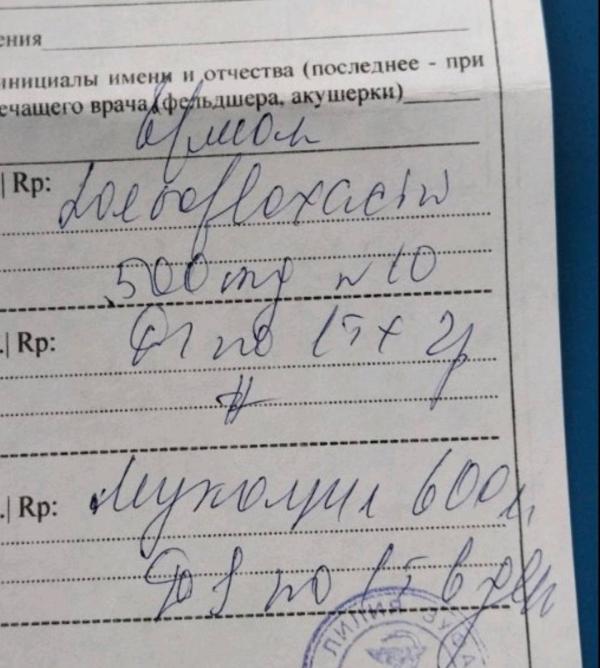 ения
инициалы имени и отчества (последнее - при
ечащего врача (фельдшера, акушерки)
| Rp:
Levofloxacin
500mg N10
.| Rp:
по 1т х 2р
#
.| Rp:
Мукомил 600
по 1т в день
ЛИЛИЯ